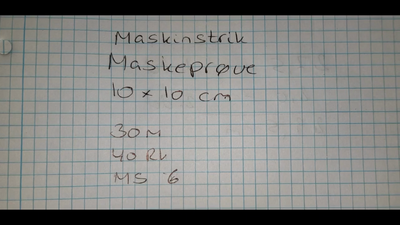 Maskinstrik
Maskeprøve
10 x 10 cm
30 M
40 RK
MS 6